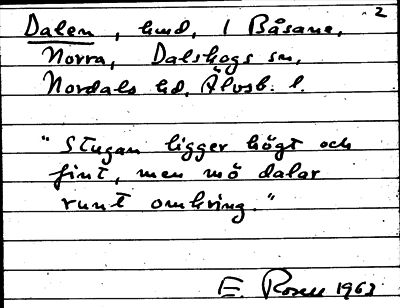 2
Dalen, hmd, 1 Båsane,
Norra, Dalskogs sn,
Nordals hd, Älvsb. l.
"Stugan ligger högt och
fint, men må dalar
runt omkring."
E. Rosen 1963